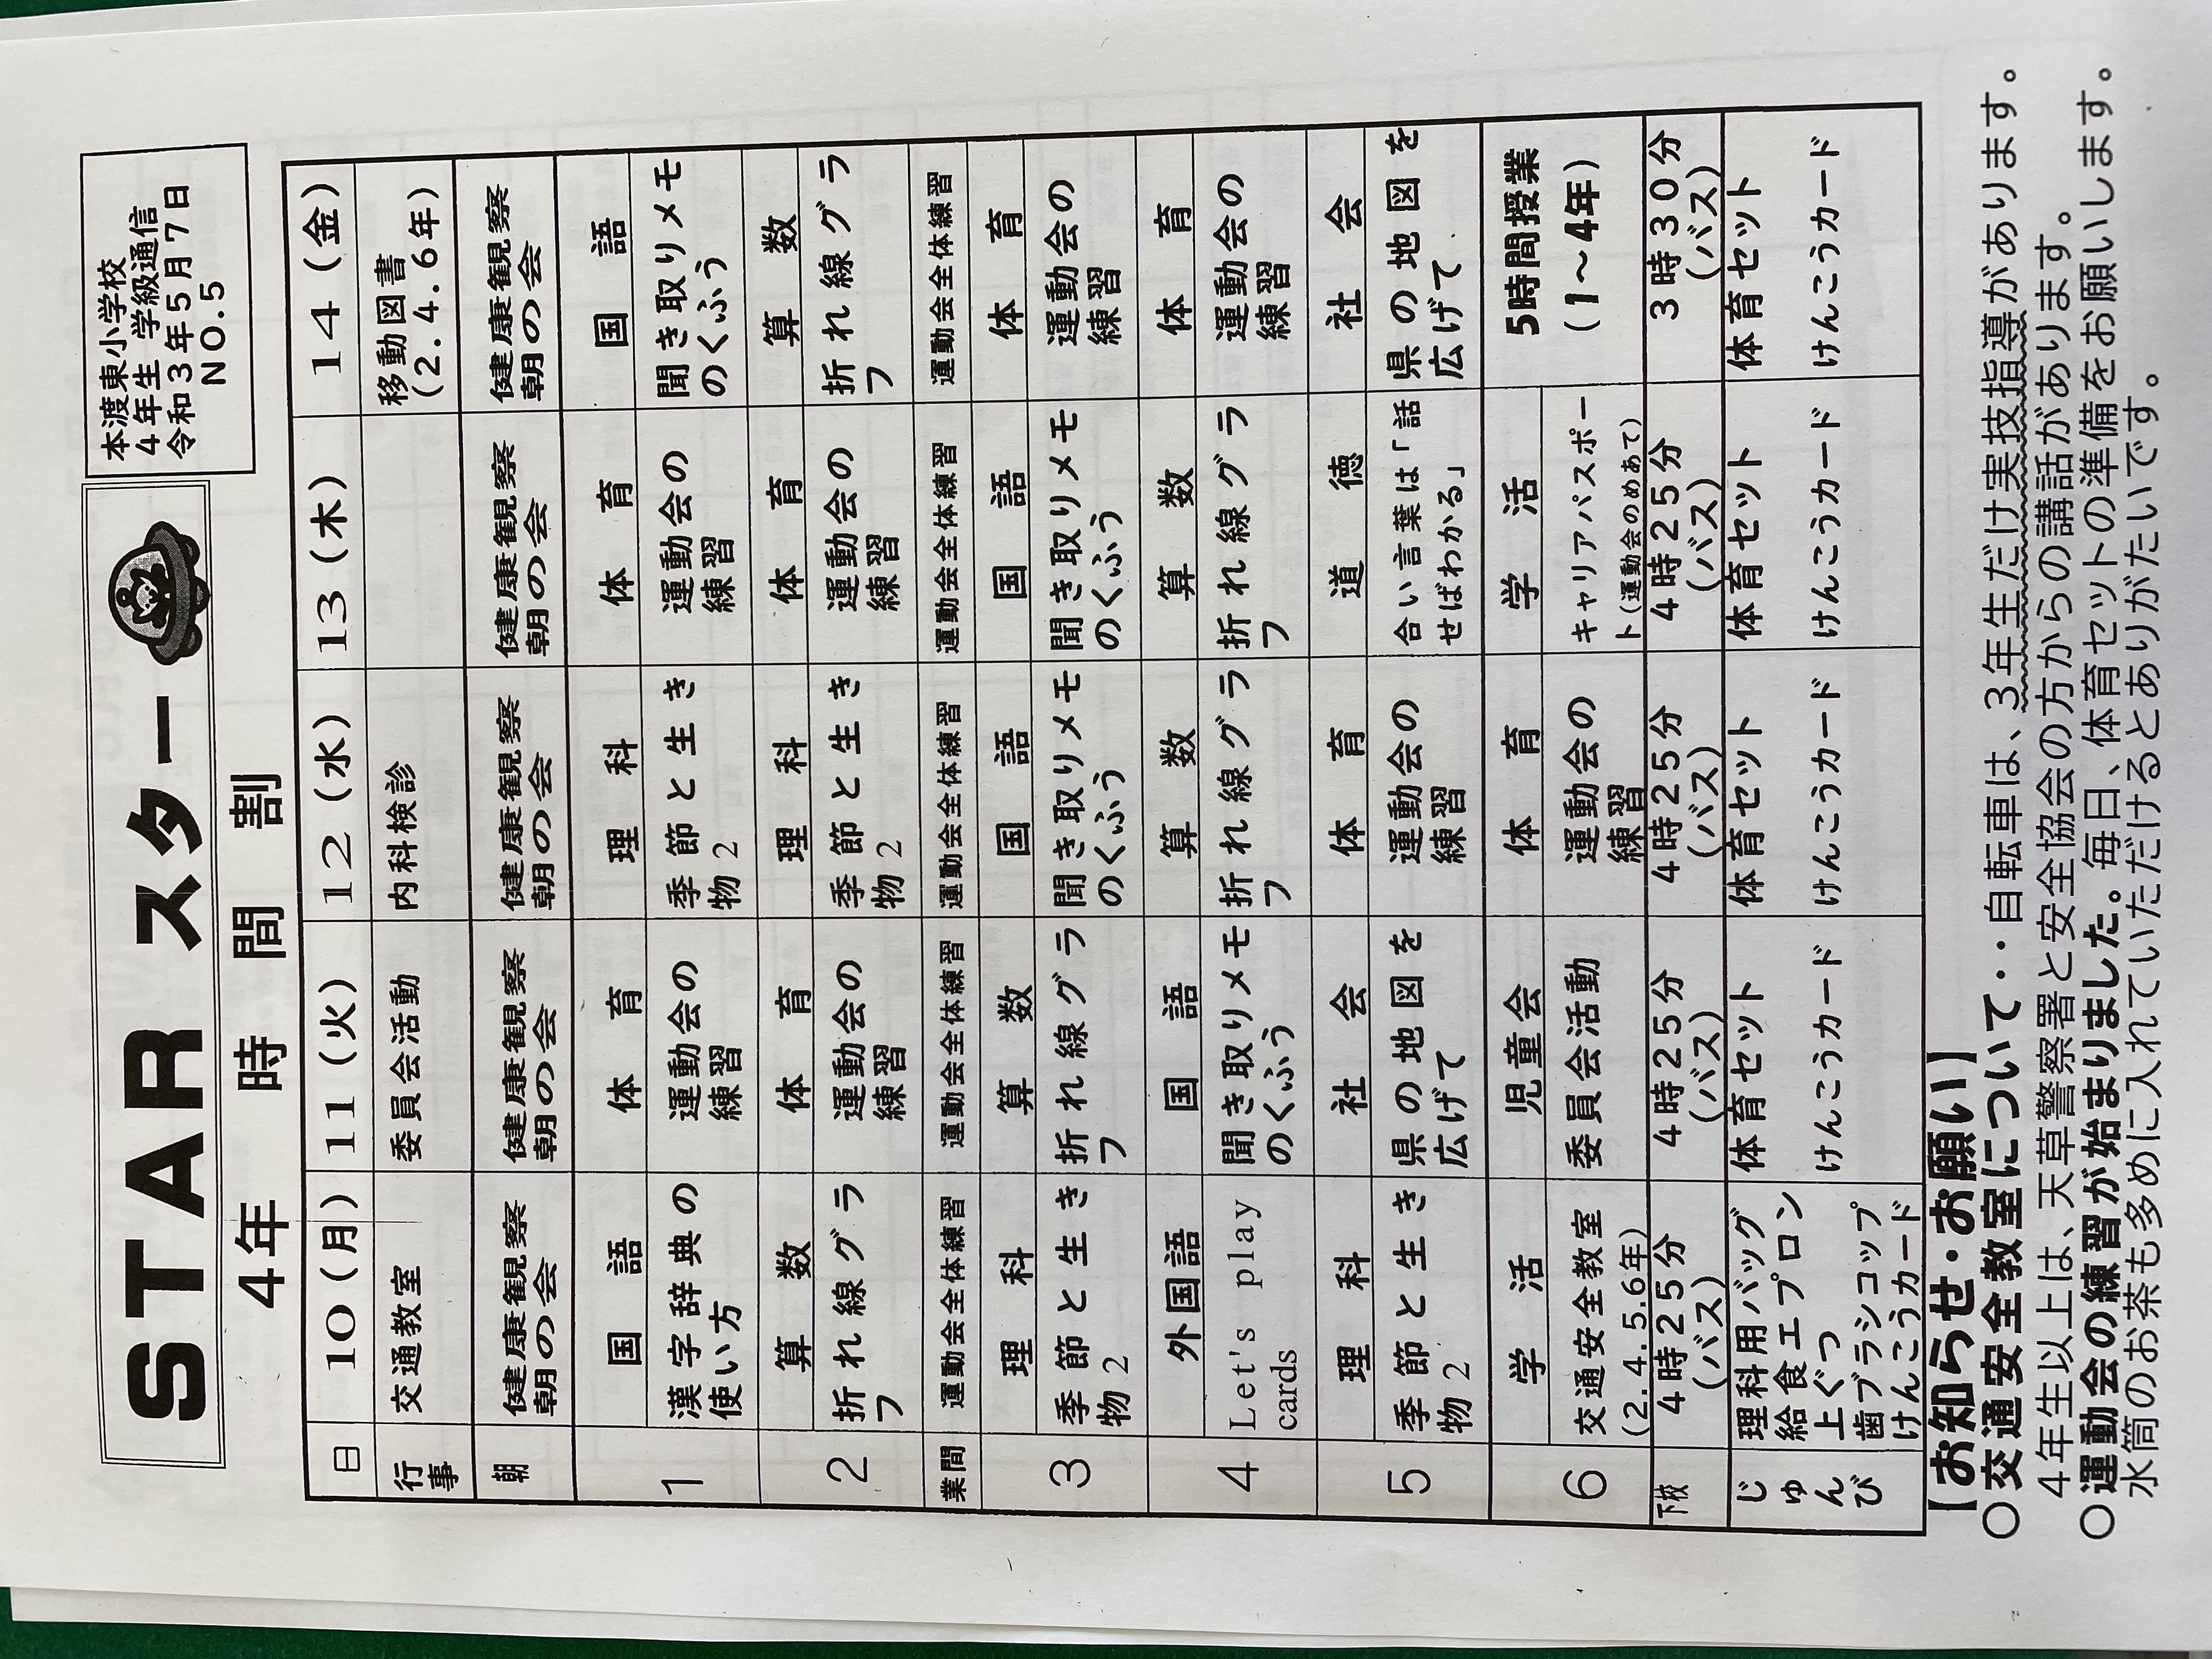 STAR スター
本渡東小学校
4年生 学級通信
令和3年5月7日
NO.5
4年 時間割
日 10(月) 11(火) 12(水) 13(木) 14(金)
行事 交通教室 委員会活動 内科検診 移動図書
(2.4.6年)
朝 健康観察 健康観察 健康観察 健康観察 健康観察
朝の会 朝の会 朝の会 朝の会 朝の会
1 国語 体育 理科 体育 国語
漢字辞典の 運動会の 季節と生き 運動会の 聞き取りメモ
使い方 練習 物2 練習 のくふう
2 算数 体育 理科 体育 算数
折れ線グラ 運動会の 季節と生き 運動会の 折れ線グラ
フ 練習 物2 練習 フ
業間 運動会全体練習 運動会全体練習 運動会全体練習 運動会全体練習 運動会全体練習
3 理科 算数 国語 国語 体育
季節と生き 折れ線グラ 聞き取りメモ 聞き取りメモ 運動会の
物2 フ のくふう のくふう 練習
4 外国語 国語 算数 算数 体育
Let's play 聞き取りメモ 折れ線グラ 折れ線グラ 運動会の
cards のくふう フ フ 練習
5 理科 社会 体育 道徳 社会
季節と生き 県の地図を 運動会の 合い言葉は「話 県の地図を
物2 広げて 練習 せばわかる」 広げて
6 学活 児童会 体育 学活 5時間授業
交通安全教室 委員会活動 運動会の キャリアパスポー (1~4年)
(2.4.5.6年) 練習 ト(運動会のめあて)
下校 4時25分 4時25分 4時25分 4時25分 3時30分
(バス) (バス) (バス) (バス) (バス)
じゅんび 理科用バッグ 体育セット 体育セット 体育セット 体育セット
給食エプロン
上ぐつ
歯ブラシコップ
けんこうカード けんこうカード けんこうカード けんこうカード けんこうカード
【お知らせ・お願い】
○交通安全教室について・・自転車は、3年生だけ実技指導があります。
4年生以上は、天草警察署と安全協会の方からの講話があります。
○運動会の練習が始まりました。毎日、体育セットの準備をお願いします。
水筒のお茶も多めに入れていただけるとありがたいです。